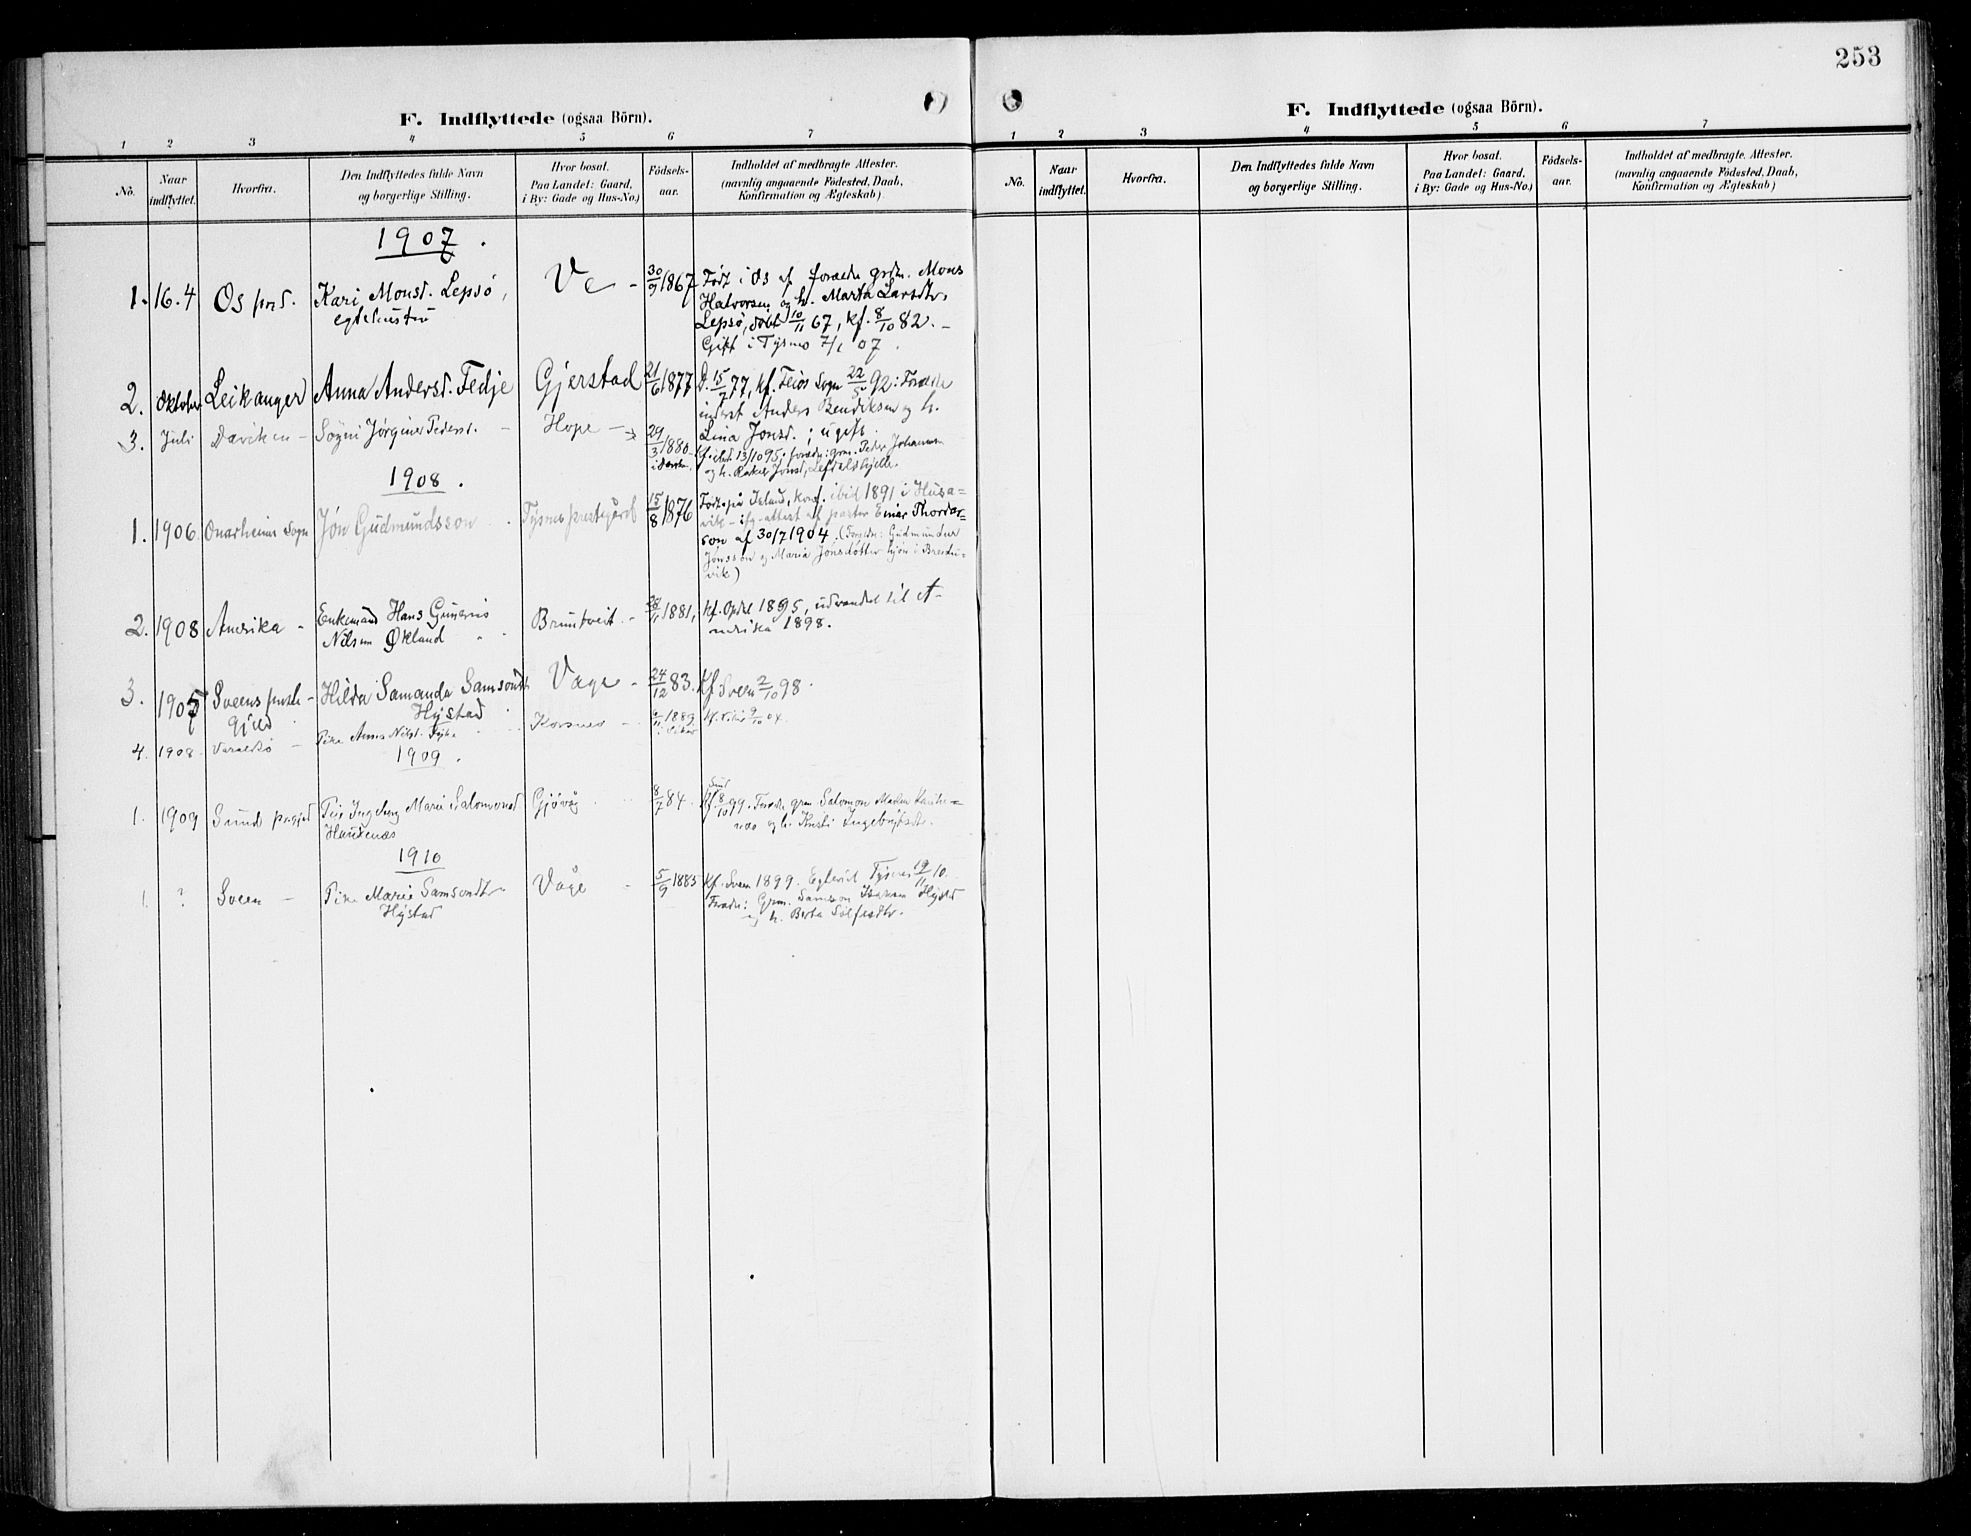 253
F. Indflyttede (ogsaa Börn).
1 2 3 4 5 6 7
No.
Naar indflyttet.
Hvorfra.
Den Indflyttedes fulde Navn
og borgerlige Stilling.
Hvor bosat.
Paa Landet: Gaard,
i By: Gade og Hus-No.)
Födsels-
aar.
Indholdet af medbragte Attester.
(navnlig angaaende Födested, Daab,
Konfirmation og Ægteskab)
1907.
1. 16.4 Os prd. Kari Monsd. Lepsö, Ve - 30/9 1867 Født i Os af foræ. grdm. Mons
egtehustru Halvorsen og h. Marta Larsdtr.
Lepsö, døbt 10/11 67, kf. 8/10 82. -
Gift i Tysnes 7/1 07.
2. Oktober Leikanger Anna Andersd. Fedje Gjerstad 21/6 1877 D. 15/7 77, kf. Feios Sogn 22/5 92: Foræ
inderst Anders Bendiksen og h.
Lina Jonsd.; ugift.
3. Juli Daviken - Søgni Jørgine Pedersd. - Hope - 29/3 1880
13/10 95; foræ: grm. Peder Johannesen
og h. Rakel Jonsd.
1908.
1. 1906 Onarheims Sogn Jón Gudmundsson Tysnes prestegård 15/8 1876 Født på Island, konf. ibid 1891 i Husa=
vik - ifg. attest af pastor Einar Thordar-
son af 30/7 1904. (Foræ: Gudmundur
Jónsson og Maria Jónsdótter hjón i Breidu-
vik)
2. 1908 Amerika - Enkemand Hans Gunerius Bruntveit - 1881, kf. Opdal 1895, udvandret til A-
Nilsen Økland merika 1898.
3. 1907 Sveens preste- Hilda Samanda Samsondt. Vage - 24/12 83. Kf. Sveen 2/10 98.
gjeld Hystad
4. 1908 Varaldsö - Pike Anna Nilsd. Korsnes - 1889 kf. 9/10 04.
1909.
1. 1909 Sund pr.gjeld Pige Ingeborg Marie Salomonsd. Gjövåg 8/7 84. Sund
Haukenæs Kf. 8/10 99. Foræ grm Salomon
og h. Kristi Ingebrigtsdtr.
1910
1. ? Sveen - Pike Marie Samsondtr. Våge - 5/9 1885 Kf. Sveen 1899. Egteviet Tysnes 19/11 10.
Hystad Foræ: Grm. Samson Isaksen Hystad
og h. Berta
F. Indflyttede (ogsaa Börn).
1 2 3 4 5 6 7
No.
Naar
indflyttet.
Hvorfra.
Den Indflyttedes fulde Navn
og borgerlige Stilling.
Hvor bosat.
Paa Landet: Gaard,
i By: Gade og Hus-No.)
Födsels-
aar.
Indholdet af medbragte Attester.
(navnlig angaaende Födested, Daab,
Konfirmation og Ægteskab)